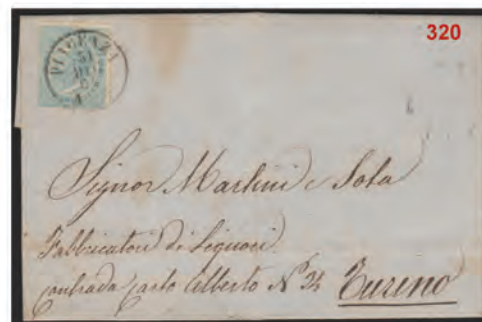 320
PIACENZA
31
Signor Martini e Sola
Fabbricatori di Liquori
contrada Carlo Alberto N° 34
Torino